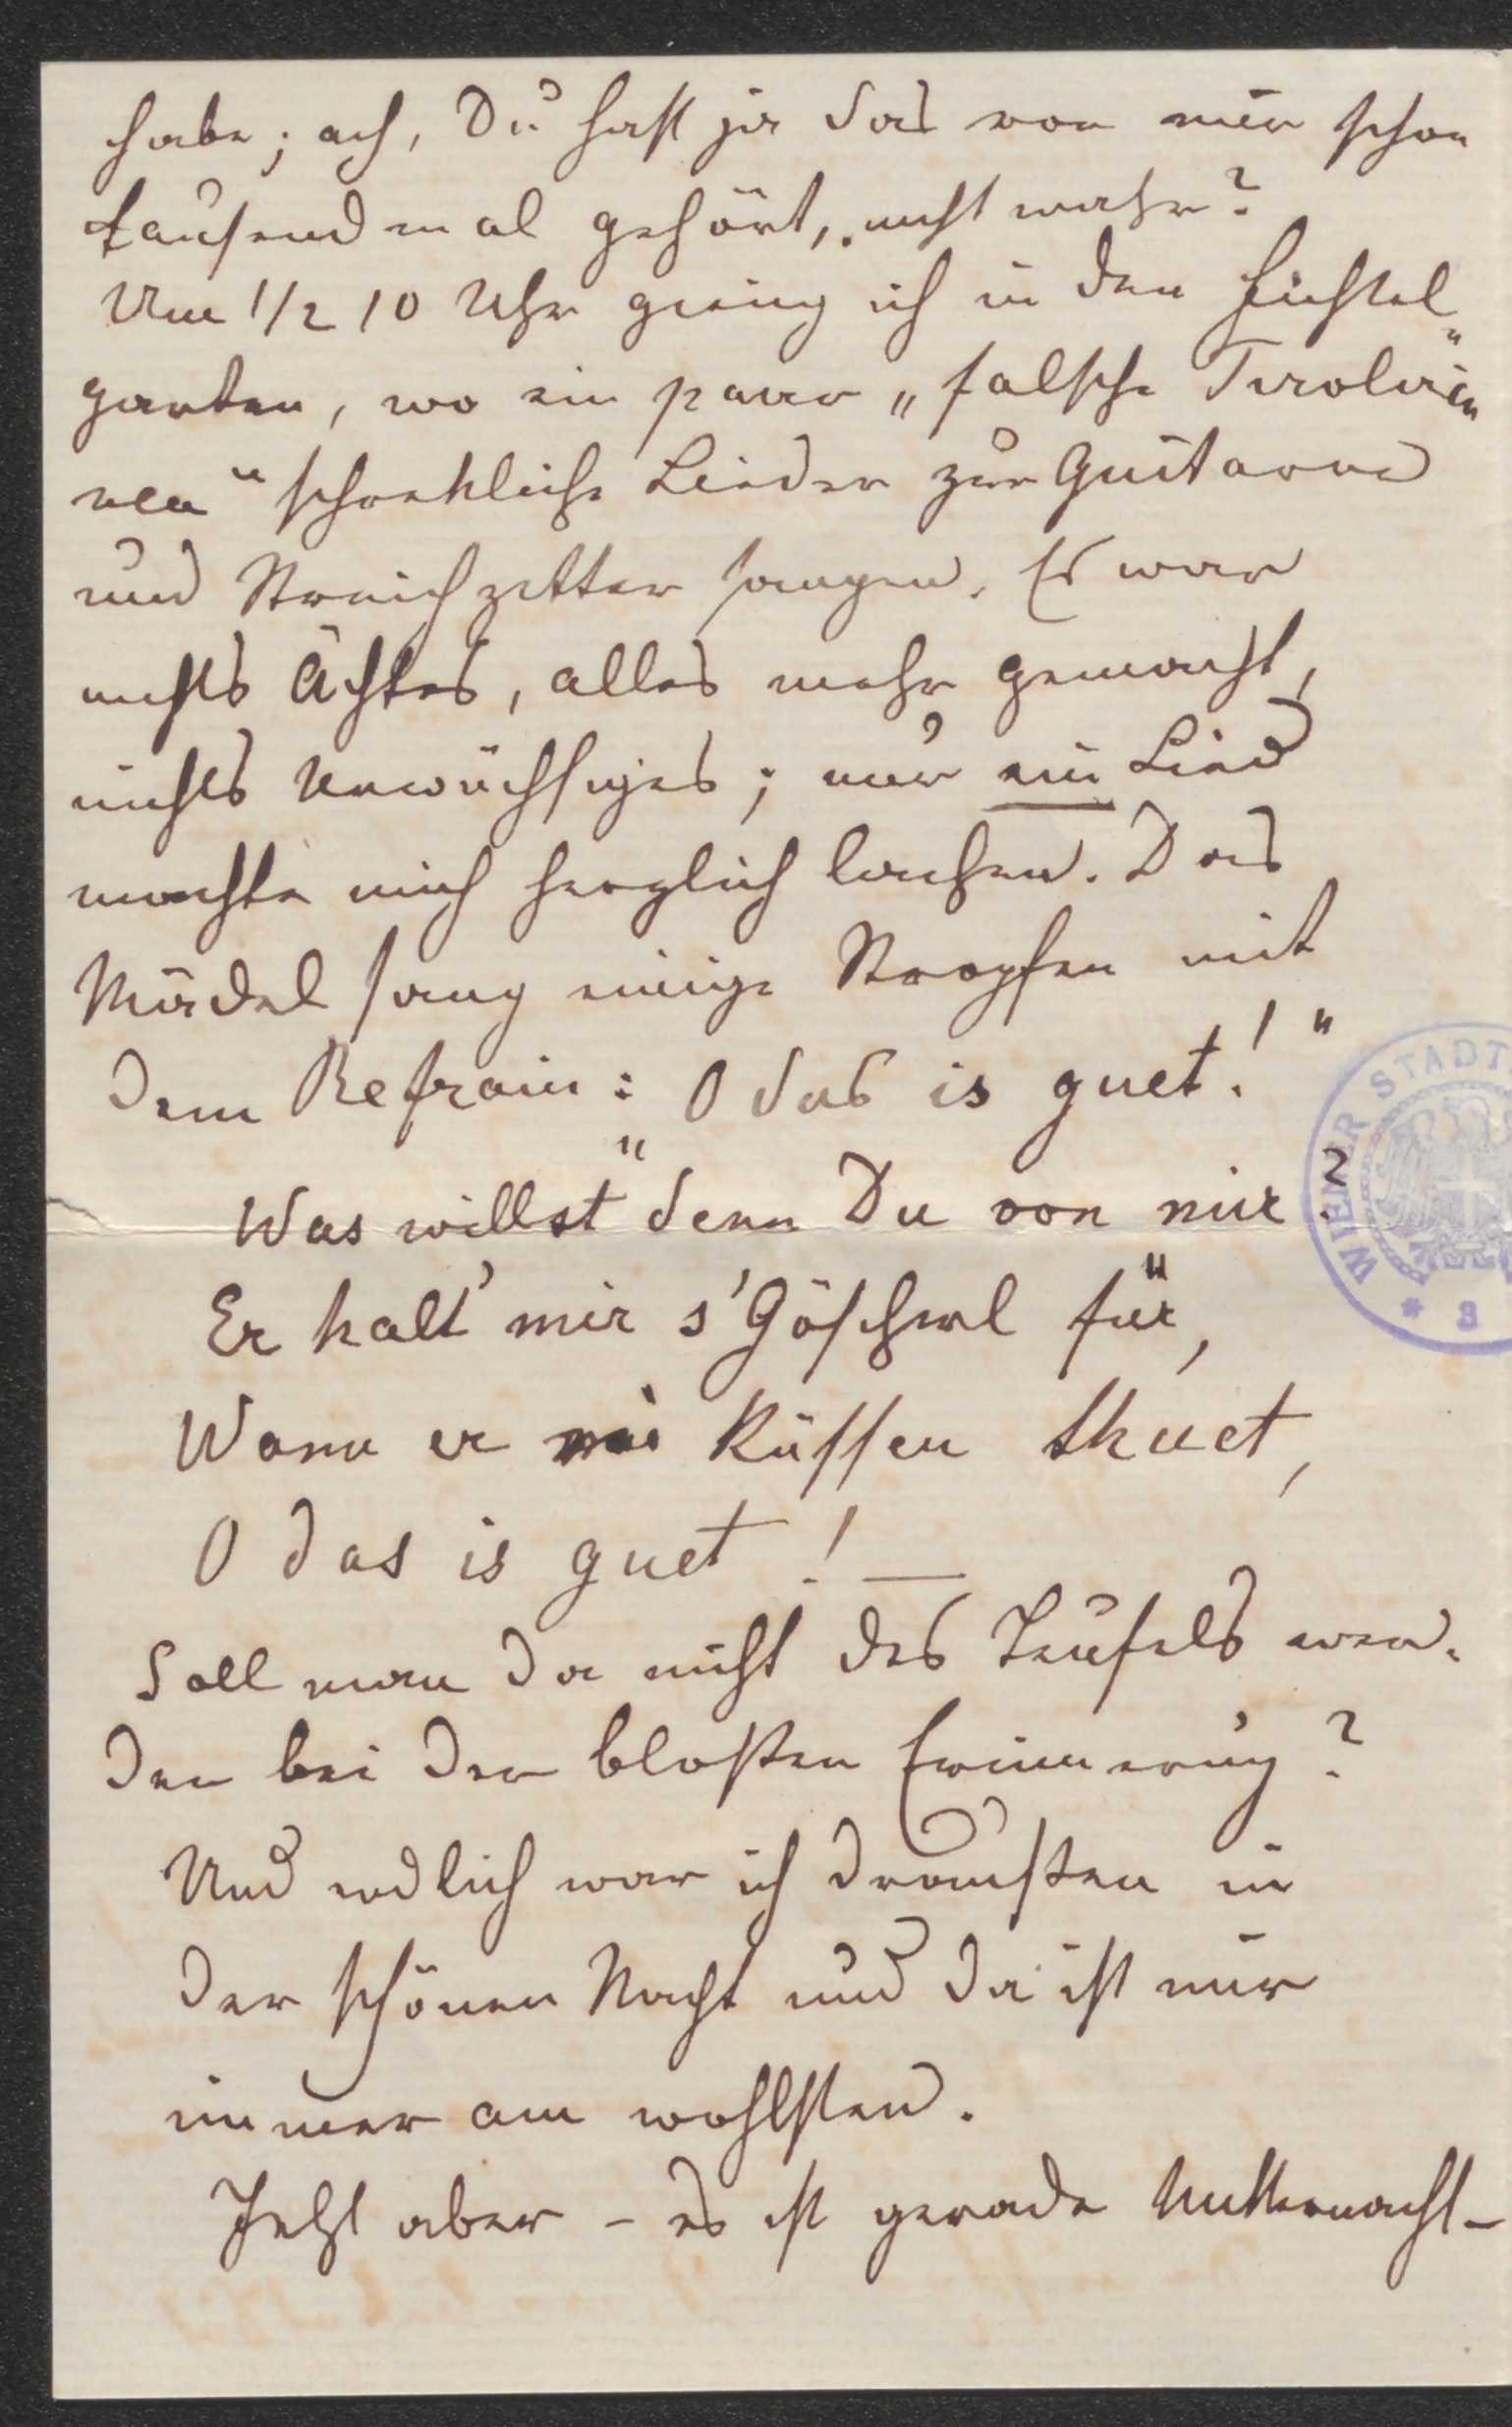 habe; ach, Du hast ja das von mir schon
tausendmal gehört, nicht wahr?
Um 1/2 10 Uhr gieng ich in den Fichtel„
garten, wo ein paar „falsche Tirolerin
nen“ schrekliche Lieder zur Guitarre
und Streichzitter sangen. Es war
nichts Ächtes, alles mehr gemacht,
nichts Urwüchsiges; nur ein Lied
machte mich herzlich lachen. Das
Mädel sang einige Strophen mit
dem Refrain: „O das is guet!“
Was willst denn Du von mir?
Er halt' mir s'Göscherl für,
Wann er mi küssen thuet,
O das is guet! —
Soll man da nicht des Teufels wer-
den bei der bloßen Erinnerung?
Und endlich war ich draußen in
der schönen Nacht und da ist mir
immer am wohlsten.
Jetzt aber – es ist gerade Mitternacht –
WIENER STADT